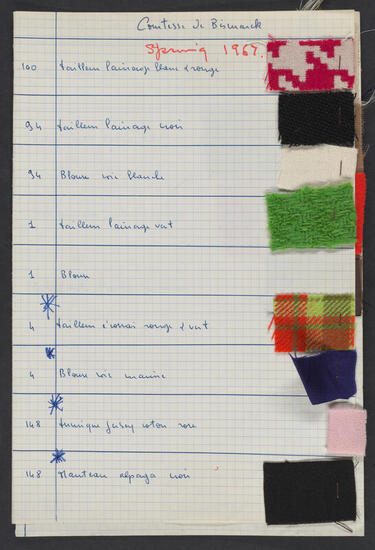 Comtesse de Bismarck
Spring 1967.
100 tailleur lainage blanc & rouge
94 tailleur lainage noir
94 Blouse soie blanche
1 tailleur lainage vert
1 Blouse
4 tailleur écossais rouge & vert
4 Blouse soie marine
148 tunique jersey coton rose
148 Manteau alpaga noir